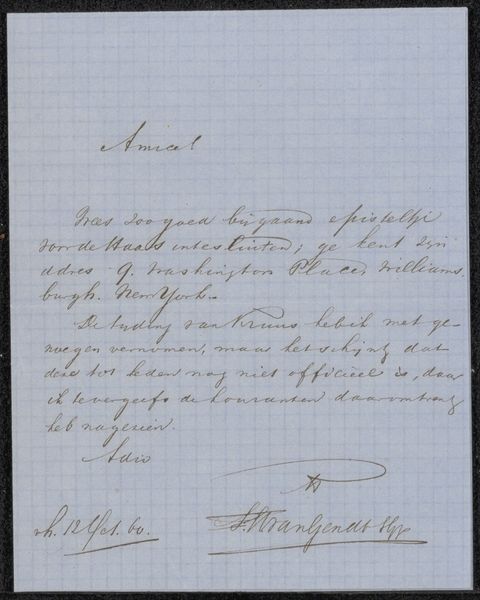 Amice!
Wees zoo goed bijgaand episteltje
voor de Haas intesluiten; ge kent zijn
adres 9. Washington Place, Williams,
burgh. New York.
De tyding van Kruus heb ik met ge-
noegen vernomen, maar het schijnt dat
deze tot heden nog niet officieel is, daar
ik tevergeefs de couranten daaromtrent
heb nagezien.
Adio
tt
12 Oct. 60.
van Gendt